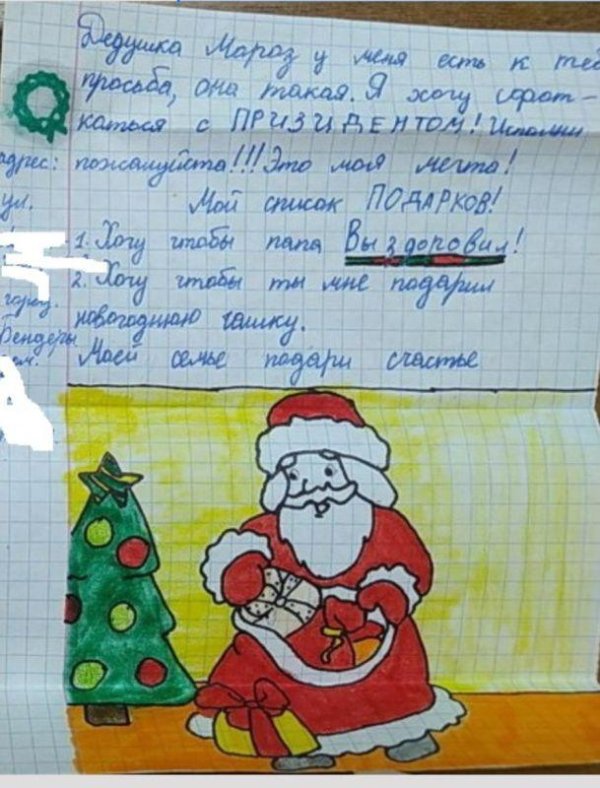 Дедушка Мароз у меня есть к теб
просьба, она такая. Я хочу сфот-
каться с ПРИЗИДЕНТОМ! Исполни
пожалуйста!!! Это моя мечта!
Мой список ПОДАРКОВ!
1. Хочу чтобы папа Выздоровил!
2. Хочу чтобы ты мне подарил
новогоднюю чашку.
Моей семье подари счастье
адрес:
ул.
город.
Бендеры